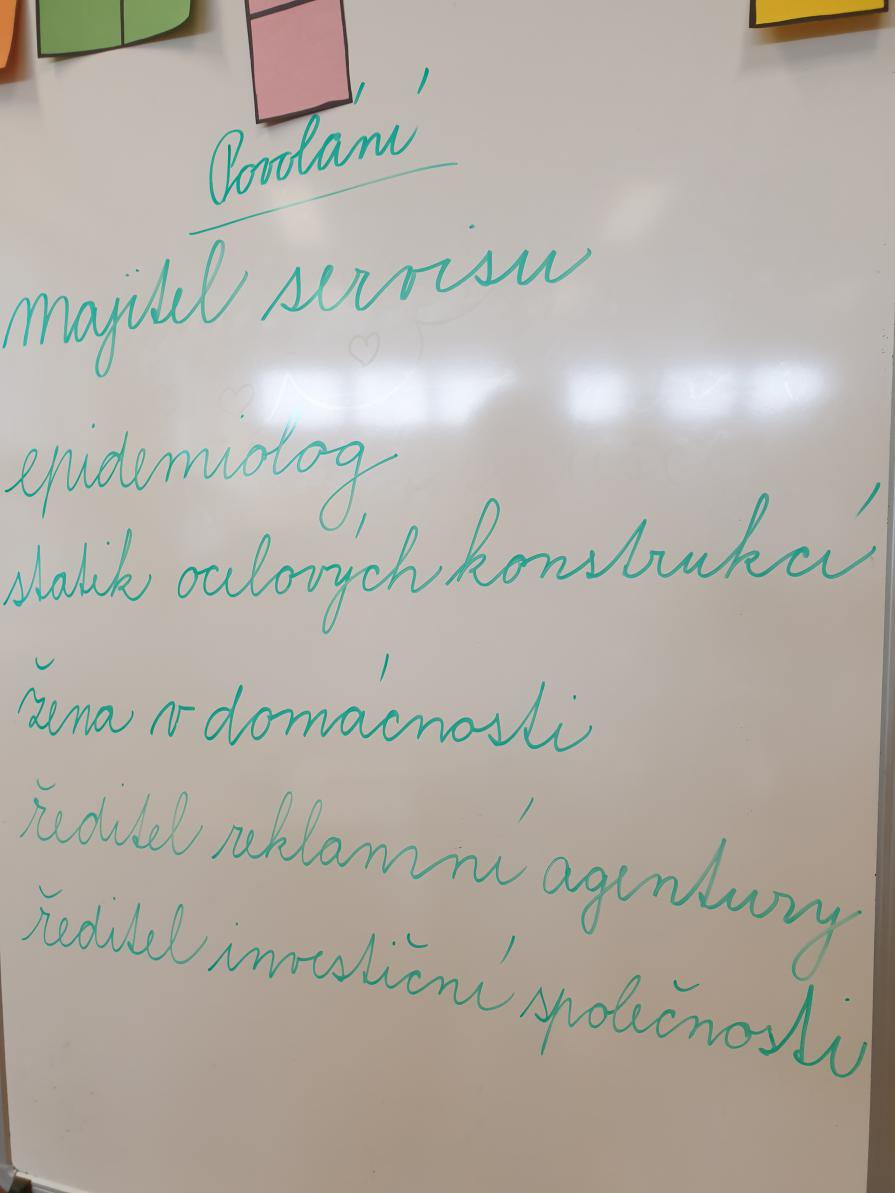 Povolání
majitel servisu
epidemiolog
statik ocelových konstrukcí
žena v domácnosti
ředitel reklamní agentury
ředitel investiční společnosti